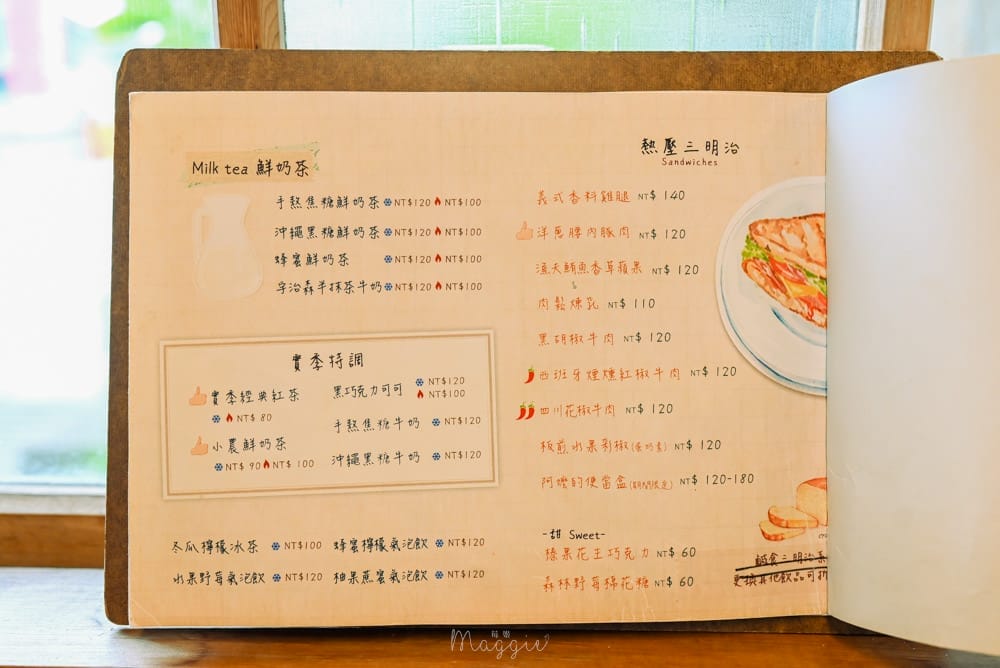 Milk tea 鮮奶茶
手熬焦糖鮮奶茶 NT$120 NT$100
沖繩黑糖鮮奶茶 NT$120 NT$100
蜂蜜鮮奶茶 NT$120 NT$100
宇治森半抹茶牛奶 NT$120 NT$100
實季特調
實季經典紅茶
NT$ 80
小農鮮奶茶
NT$ 90 NT$ 100
黑巧克力可可 NT$120
NT$100
手熬焦糖牛奶 NT$120
沖繩黑糖牛奶 NT$120
冬瓜檸檬冰茶 NT$100
蜂蜜檸檬氣泡飲 NT$120
水果野莓氣泡飲 NT$120
柚果蕉蜜氣泡飲 NT$120
熱壓三明治
Sandwiches
義式香料雞腿 NT$ 140
洋蔥腰內豚肉 NT$ 120
漁夫鮪魚香草蘋果 NT$ 120
肉鬆煉乳 NT$ 110
黑胡椒牛肉 NT$ 120
西班牙煙燻紅椒牛肉 NT$ 120
四川花椒牛肉 NT$ 120
板煎水果剁椒(蛋奶素) NT$ 120
阿嬤的便當盒(期間限定) NT$ 120-180
-甜 Sweet-
榛果花生巧克力 NT$ 60
森林野莓棉花糖 NT$ 60
鹹食三明治系
更換其他飲品可折
莓姬
Maggie